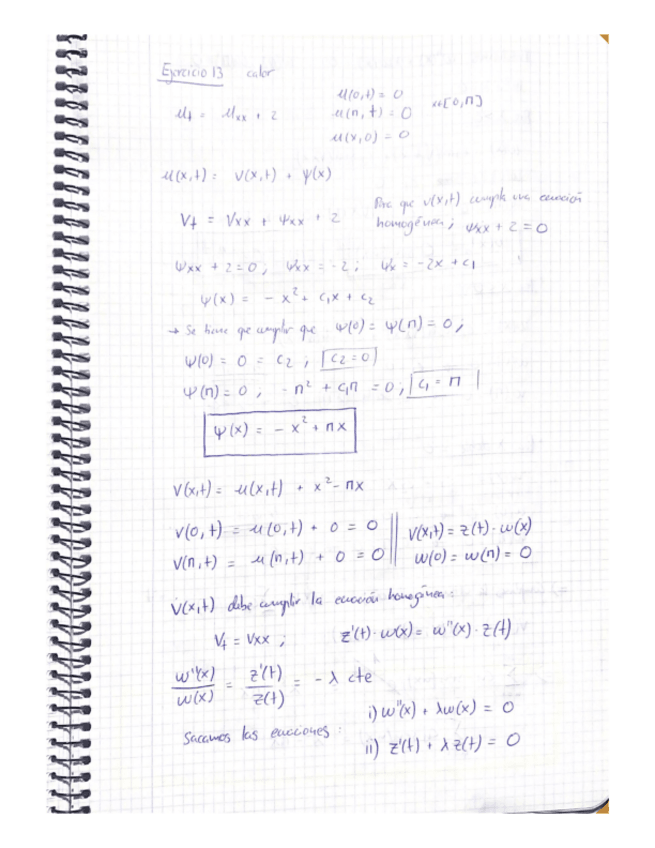 Ejercicio 13 calor
u(0,t) = 0
ut = uxx + 2 u(π,t) = 0 u[0,π]
u(x,0) = 0
u(x,t) = v(x,t) + ψ(x)
Vt = Vxx + ψxx + 2 Para que v(x,t) cumpla una ecuación homogénea; ψxx + 2 = 0
ψxx + 2 = 0; ψxx = -2; ψx = -2x + c1
ψ(x) = - x² + c1x + c2
→ Se tiene que cumplir que ψ(0) = ψ(π) = 0;
ψ(0) = 0 = c2 ; c2 = 0
ψ(π) = 0, - π² + c1π = 0; c1 = π
ψ(x) = - x² + πx
V(x,t) = u(x,t) + x² - πx
V(0,t) = u(0,t) + 0 = 0 || V(x,t) = z(t) · w(x)
V(π,t) = u(π,t) + 0 = 0 || w(0) = w(π) = 0
V(x,t) debe cumplir la ecuación homogénea:
Vt = Vxx ; z'(t) · w(x) = w''(x) · z(t)
w''(x)/w(x) = z'(t)/z(t) = - λ cte
i) w''(x) + λw(x) = 0
Sacamos las ecuaciones:
ii) z'(t) + λ z(t) = 0